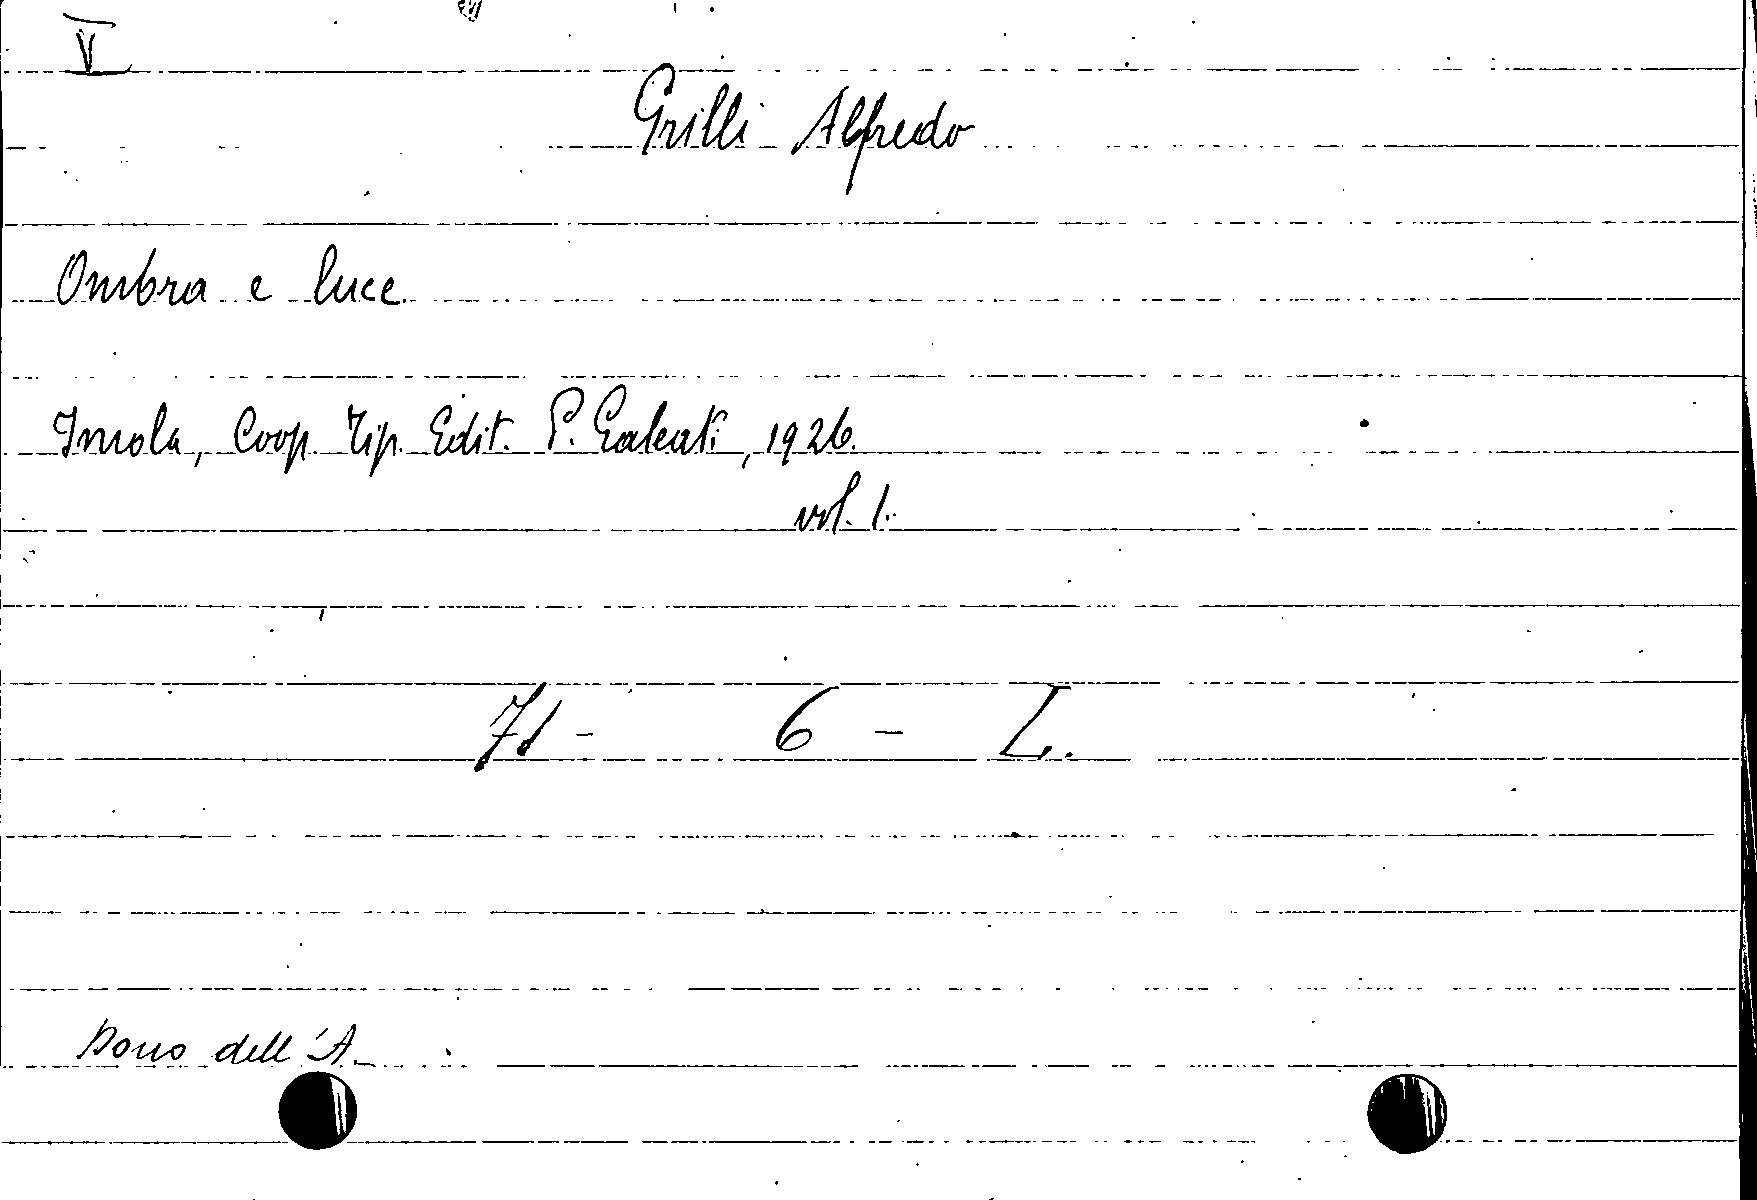 V
Grilli Alfredo
Ombra e luce
Imola, Coop. Tip. Edit. P. Galeati, 1926.
vol. 1.
71 - 6 - L.
Dono dell'A.